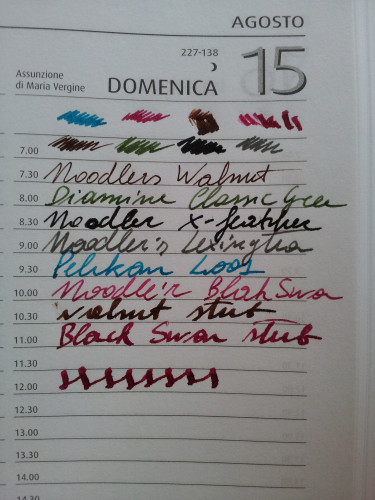 AGOSTO
227-138
Assunzione
di Maria Vergine
DOMENICA
15
7.00
7.30 Noodlers Walnut
8.00 Diamine Classic Gree
8.30 Noodler X-feather
9.00 Noodler's Lexington
9.30 Pelikan
10.00 Noodler Blak Swan
10.30 walnut stub
11.00 Black Swan stub
11.30
12.00
12.30
13.00
13.30
14.00